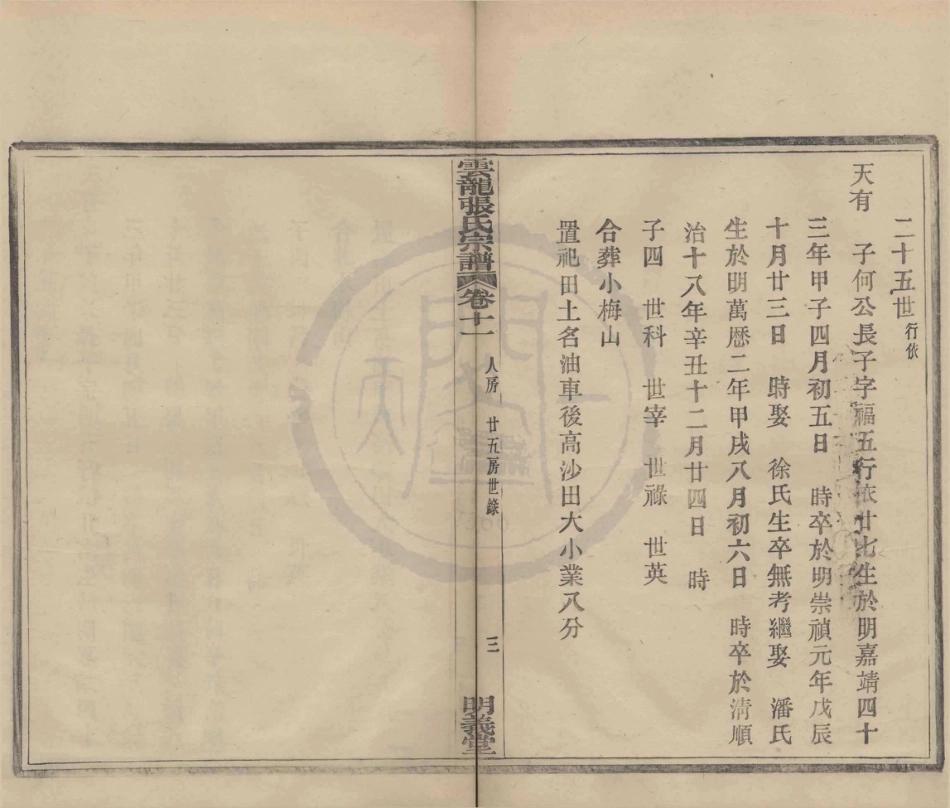 二十五世行依
天有 子何公長子字福五行依廿七生於明嘉靖四十
三年甲子四月初五日 時卒於明崇禎元年戊辰
十月廿三日 時娶 徐氏生卒無考繼娶 潘氏
生於明萬歷二年甲戌八月初六日 時卒於清順
治十八年辛丑十二月廿四日 時
子四 世科 世宰 世祿 世英
合葬小梅山
置祀田土名油車後高沙田大小業八分
雲龍張氏宗譜 卷十一 人房 廿五房世錄 三 明義堂